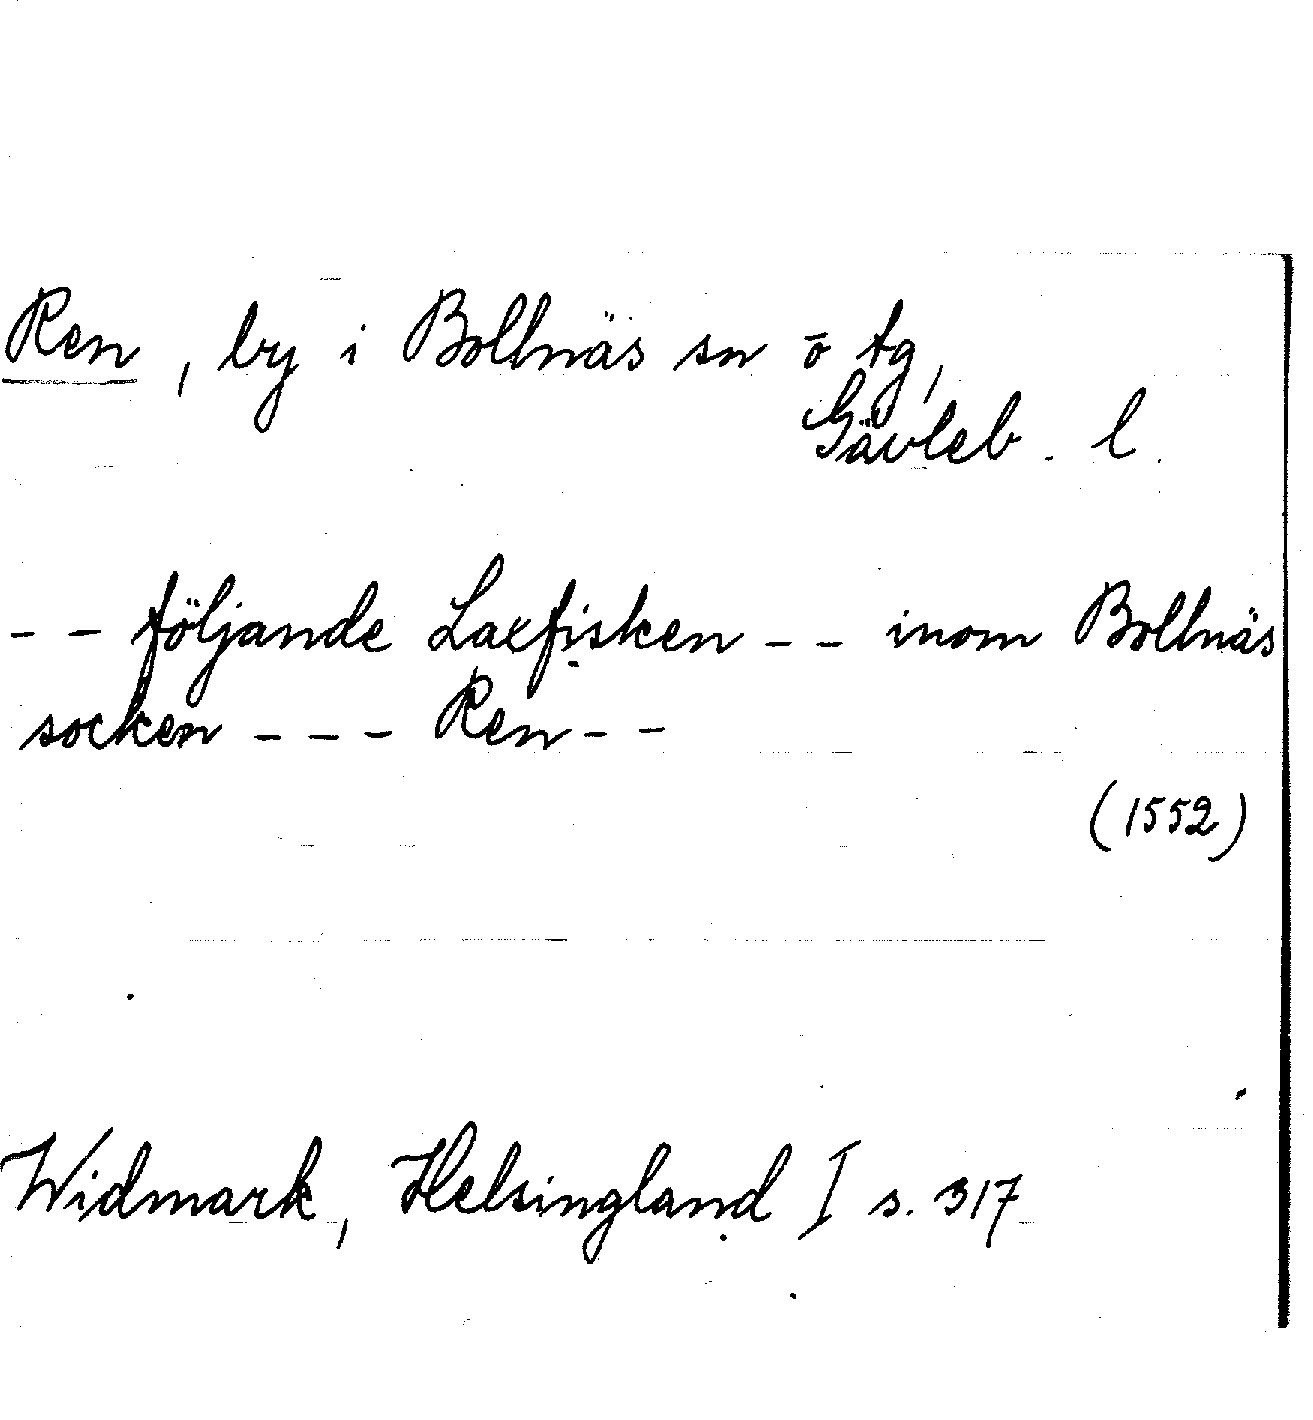 Ren, by i Bollnäs sn o tg,
Gävleb. l.
- - följande Laxfisken - - inom Bollnäs
socken - - - Ren - -
(1552)
Widmark, Helsingland I s. 317